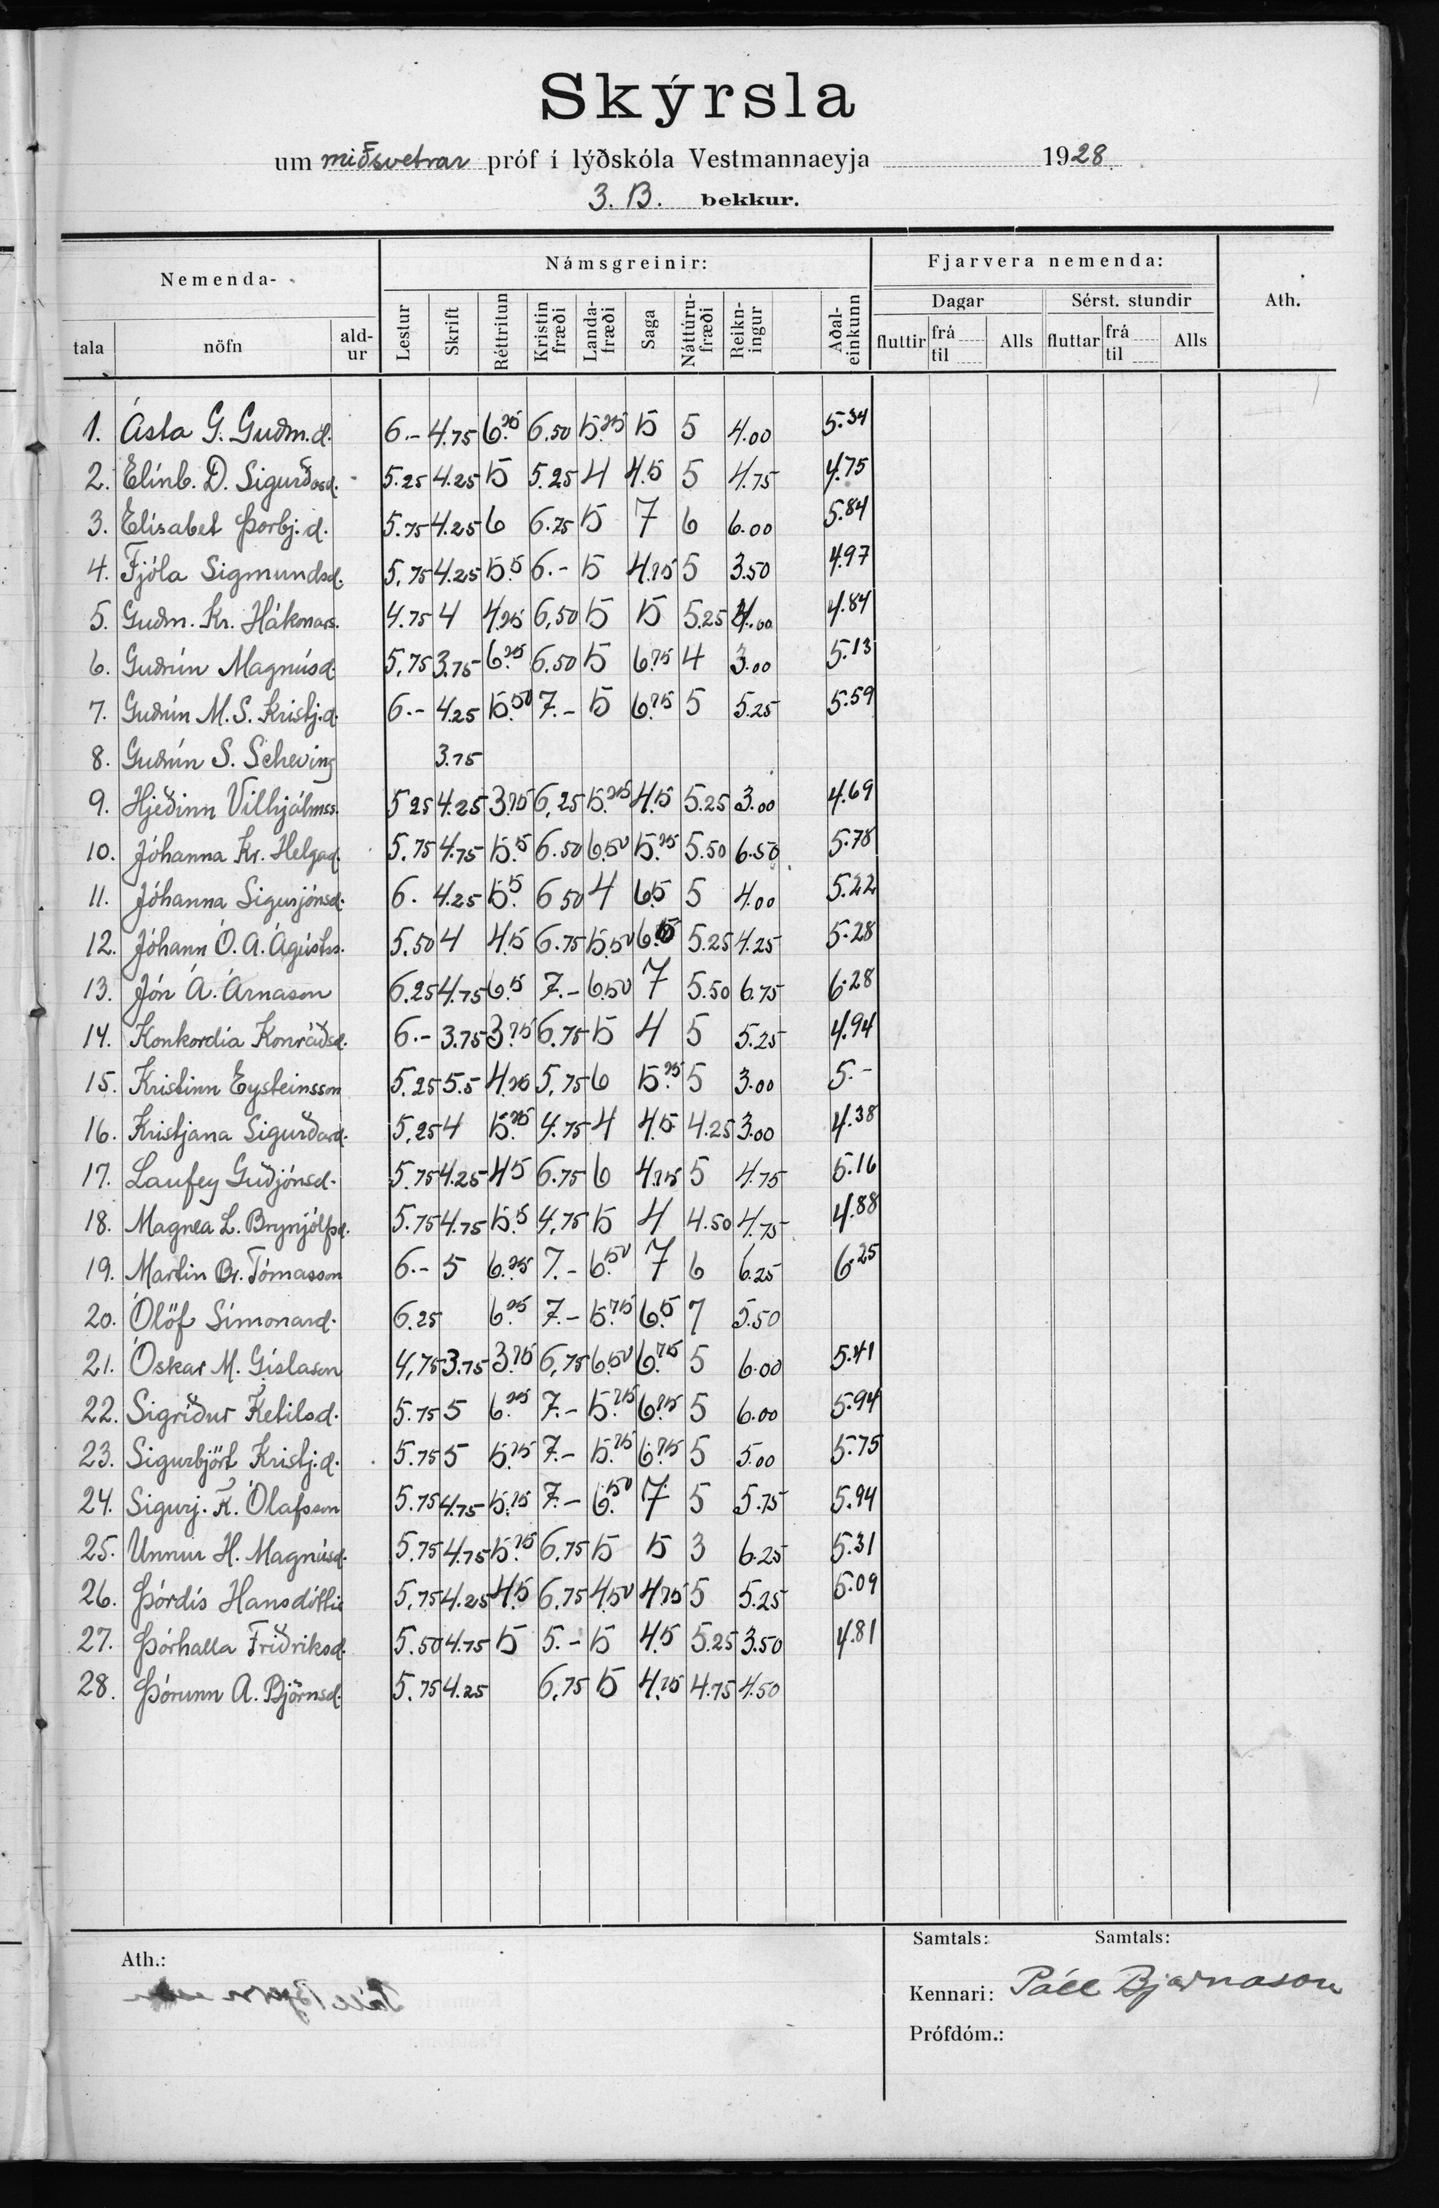 Skýrsla
um miðsvetrar próf í lýðskóla Vestmannaeyja 1928
3. B. bekkur.
Nemenda- Námsgreinir: Fjarvera nemenda: Ath.
Dagar Sérst. stundir
tala nöfn ald-ur Lestur Skrift Réttritun Kristin fræði Landa-fræði Saga Náttúru-fræði Reikn-ingur Aðal-einkunn fluttir frá til Alls fluttar frá til Alls
1. Ásta G. Guðm.d. 6.- 4.75 6.25 6.50 5.25 5 5 4.00 5.34
2. Elínb. D. Sigurðard. 5.25 4.25 5 5.25 4 4.5 5 4.75 4.75
3. Elísabet Þorbj.d. 5.75 4.25 6 6.75 5 7 6 6.00 5.84
4. Fjóla Sigmundsd. 5.75 4.25 5.5 6.- 5 4.75 5 3.50 4.97
5. Guðm. Kr. Hákonars. 4.75 4 4.25 6.50 5 5 5.25 4.00 4.84
6. Guðrún Magnúsd. 5.75 3.75 6.25 6.50 5 6.75 4 3.00 5.13
7. Guðrún M. S. Kristj.d. 6.- 4.25 5.50 7.- 5 6.75 5 5.25 5.59
8. Guðrún S. Scheving 3.75
9. Hjeðinn Vilhjálmss. 5.25 4.25 3.75 6.25 5.25 4.5 5.25 3.00 4.69
10. Jóhanna Kr. Helgad. 5.75 4.75 5.5 6.50 6.50 5.25 5.50 6.50 5.78
11. Jóhanna Sigurjónsd. 6. 4.25 5.5 6.50 4 6.5 5 4.00 5.22
12. Jóhann Ó. A. Ágústss. 5.50 4 4.5 6.75 5.50 6.5 5.25 4.25 5.28
13. Jón Á. Árnason 6.25 4.75 6.5 7.- 6.50 7 5.50 6.75 6.28
14. Konkordía Konráðsd. 6.- 3.75 3.75 6.75 5 4 5 5.25 4.94
15. Kristinn Eysteinsson 5.25 5.5 4.25 5.75 6 5.25 5 3.00 5.-
16. Kristjana Sigurðard. 5.25 4 5.25 4.75 4 4.5 4.25 3.00 4.38
17. Laufey Guðjónsd. 5.75 4.25 4.5 6.75 6 4.25 5 4.75 5.16
18. Magnea L. Brynjólfsd. 5.75 4.75 5.5 4.75 5 4 4.50 4.75 4.88
19. Martin Br. Tómasson 6.- 5 6.25 7.- 6.50 7 6 6.25 6.25
20. Ólöf Símonard. 6.25 6.25 7.- 5.75 6.5 7 5.50
21. Óskar M. Gíslason 4.75 3.75 3.75 6.75 6.50 6.75 5 6.00 5.41
22. Sigríður Ketilsd. 5.75 5 6.25 7.- 5.75 6.75 5 6.00 5.94
23. Sigurbjört Kristj.d. 5.75 5 5.75 7.- 5.75 6.75 5 5.00 5.75
24. Sigurj. K. Ólafsson 5.75 4.75 5.75 7.- 6.50 7 5 5.75 5.94
25. Unnur H. Magnúsd. 5.75 4.75 5.75 6.75 5 5 3 6.25 5.31
26. Þórdís Hansdóttir 5.75 4.25 4.5 6.75 4.50 4.75 5 5.25 5.09
27. Þórhalla Friðriksd. 5.50 4.75 5 5.- 5 4.5 5.25 3.50 4.81
28. Þórunn A. Björnsd. 5.75 4.25 6.75 5 4.75 4.75 4.50
Samtals: Samtals:
Ath.:
Kennari: Páll Bjarnason
Prófdóm.: